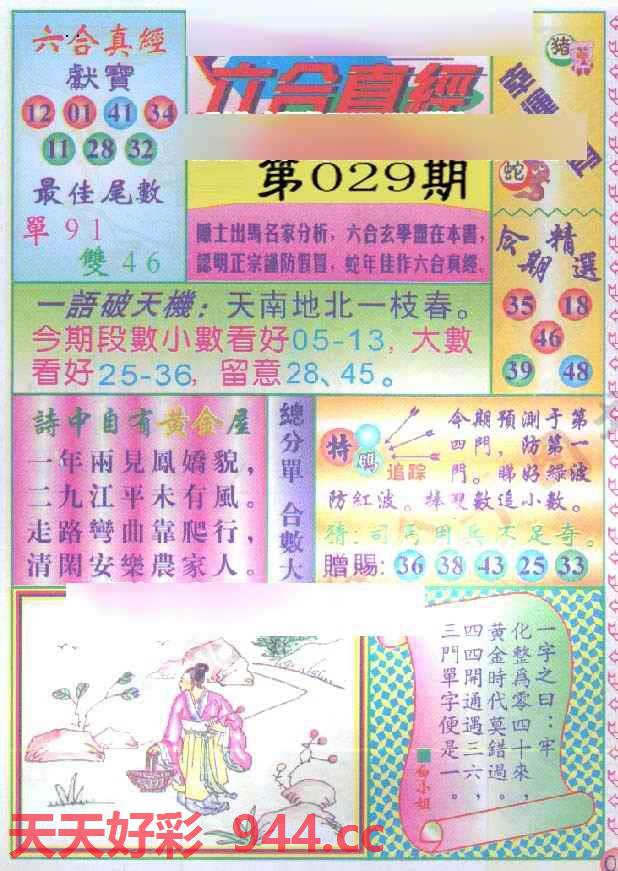 六合真經
獻寶
12 01 41 34
11 28 32
最佳尾數
單 9 1
雙 4 6
六合真經
第029期
隱士出馬名家分析，六合玄學盡在本書，
認明正宗謹防假冒，蛇年佳作六合真經。
豬
蛇
今期精選
35 18
46
39 48
一語破天機：天南地北一枝春。
今期段數小數看好05-13，大數
看好25-36，留意28、45。
詩中自有黃金屋
一年兩見鳳嬌貌，
二九江平未有風。
走路彎曲靠爬行，
清閑安樂農家人。
總分單 合數大
特碼
追踪
今期預測于第
四門，防第一
門。睇好綠波
防紅波。捧雙數追小數。
猜：司馬用兵不足奇。
贈賜：36 38 43 25 33
一字之曰：牢
化整為零四十來，
黃金時代莫錯過。
四四開通遇三六，
三門單字便是一。
白小姐
天天好彩 944.cc